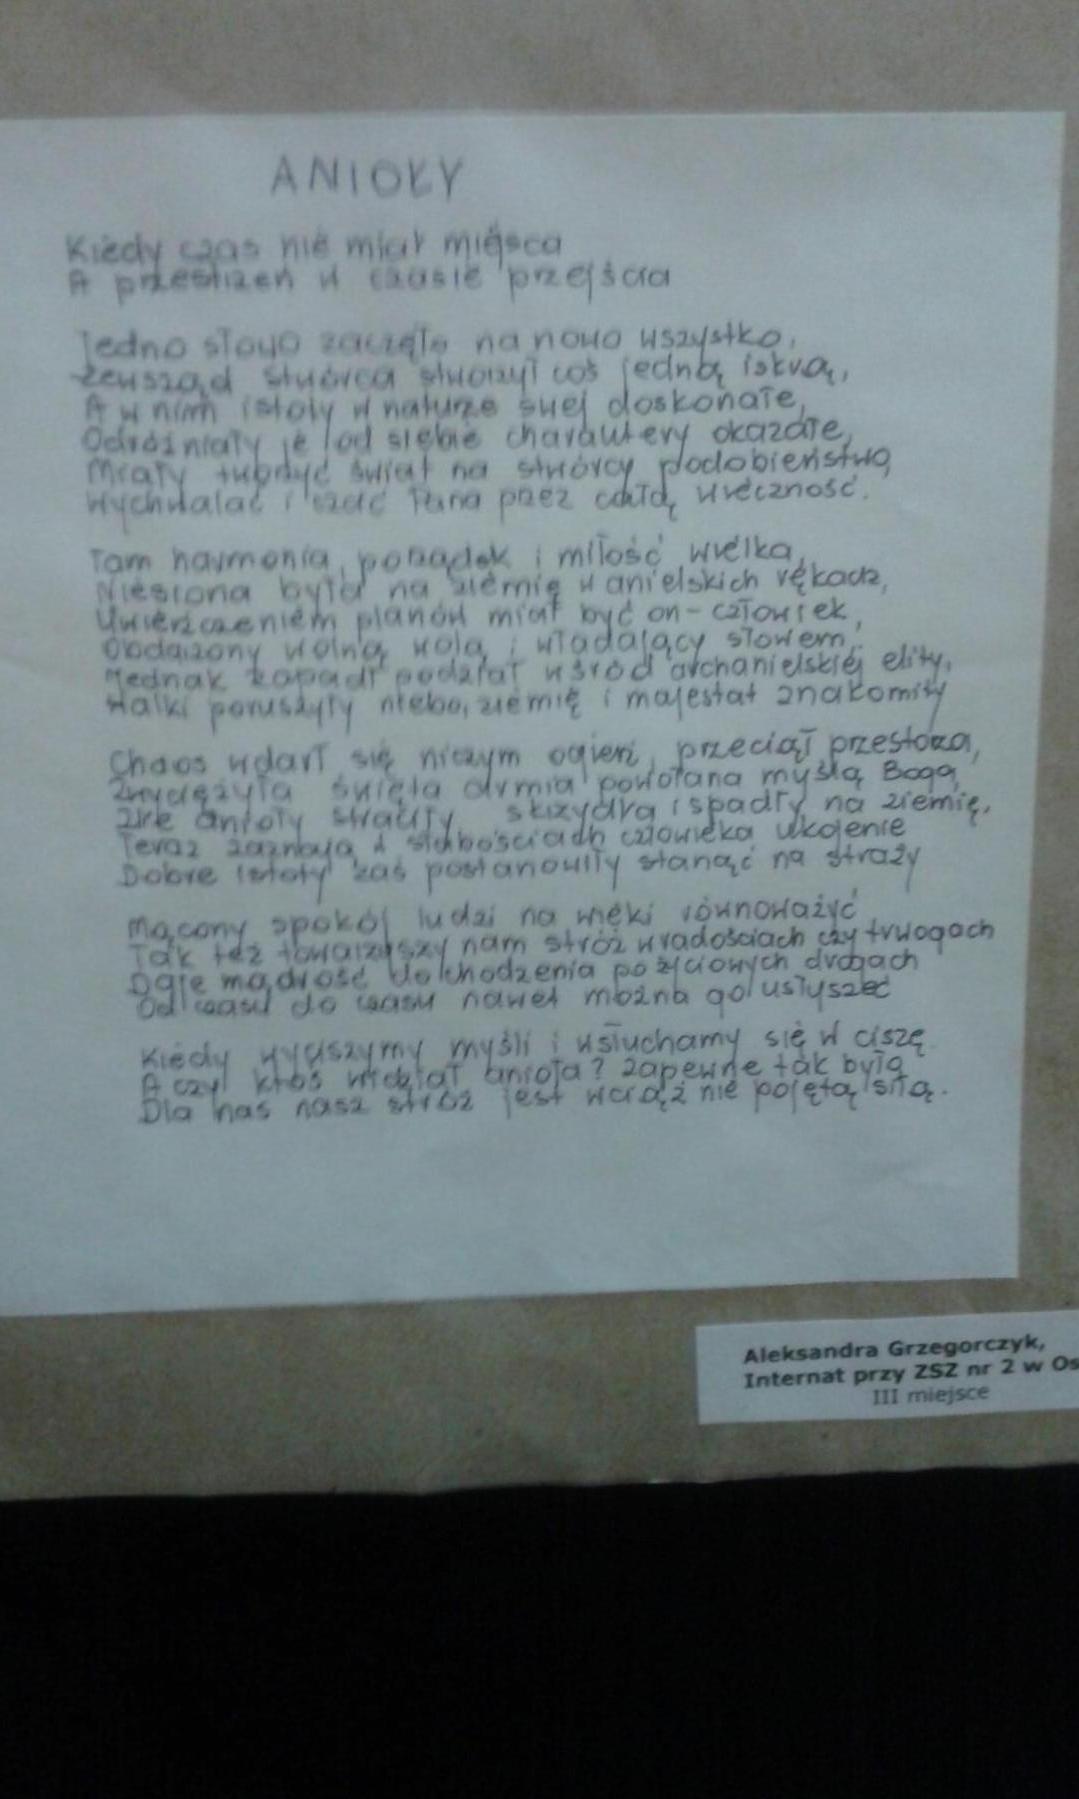 ANIOŁY
Kiedy czas nie miał miejsca
A przestrzeń w czasie przejścia
Jedno słowo zaczęło na nowo wszystko,
Zewsząd stwórca stworzył coś jedną iskrą,
A w nim istoty w naturze swej doskonałe,
Odróżniały je od siebie charaktery okazałe,
Miały tworzyć świat na stwórcy podobieństwo,
Wychwalać i czcić Pana przez całą wieczność.
Tam harmonia, porządek i miłość wielka,
Niesiona była na ziemię w anielskich rękach,
Uwieńczeniem planów miał być on - człowiek,
Obdarzony wolną wolą i władający słowem,
Jednak zapadł podział wśród archanielskiej elity,
Walki poruszyły niebo, ziemię i majestat znakomity
Chaos wdarł się niczym ogień, przeciął przestworza,
Zwyciężyła święta armia powołana myślą Boga,
Złe anioły straciły skrzydła i spadły na ziemię,
Teraz zaznają w słabościach człowieka ukojenie
Dobre istoty zaś postanowiły stanąć na straży
Mącony spokój ludzi na wieki równoważyć
Tak też towarzyszy nam stróż w radościach czy trwogach
Daje mądrość do chodzenia po życiowych drogach
Od czasu do czasu nawet można go usłyszeć
Kiedy wyciszymy myśli i wsłuchamy się w ciszę
A czy ktoś widział anioła? Zapewne tak było
Dla nas nasz stróż jest wciąż nie pojętą siłą.
Aleksandra Grzegorczyk,
Internat przy ZSZ nr 2 w Os
III miejsce